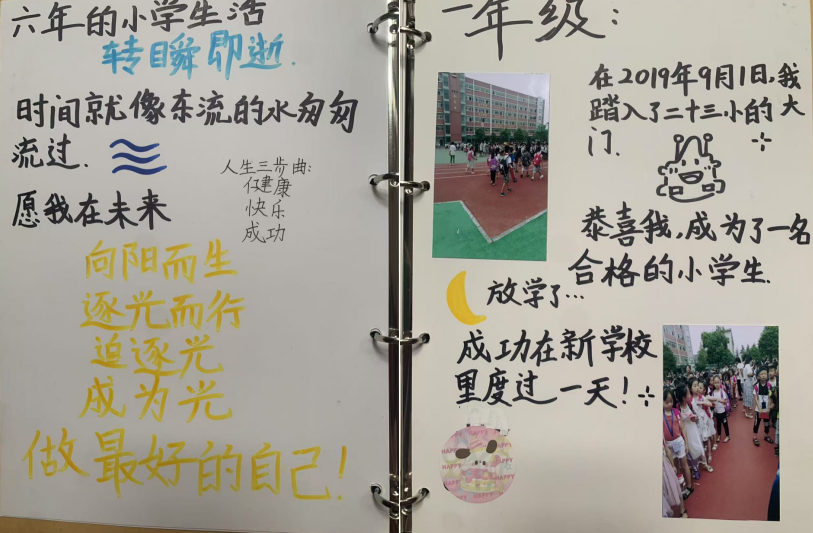 六年的小学生活
转瞬即逝.
时间就像东流的水匆匆
流过.
人生三步曲:
健康
快乐
成功
愿我在未来
向阳而生
逐光而行
追逐光
成为光
做最好的自己!
一年级:
在2019年9月1日,我
踏入了二十三小的大
门.
恭喜我,成为了一名
合格的小学生.
放学了...
成功在新学校
里度过一天!
HAPPY
HAPPY
HAPPY
HAPPY